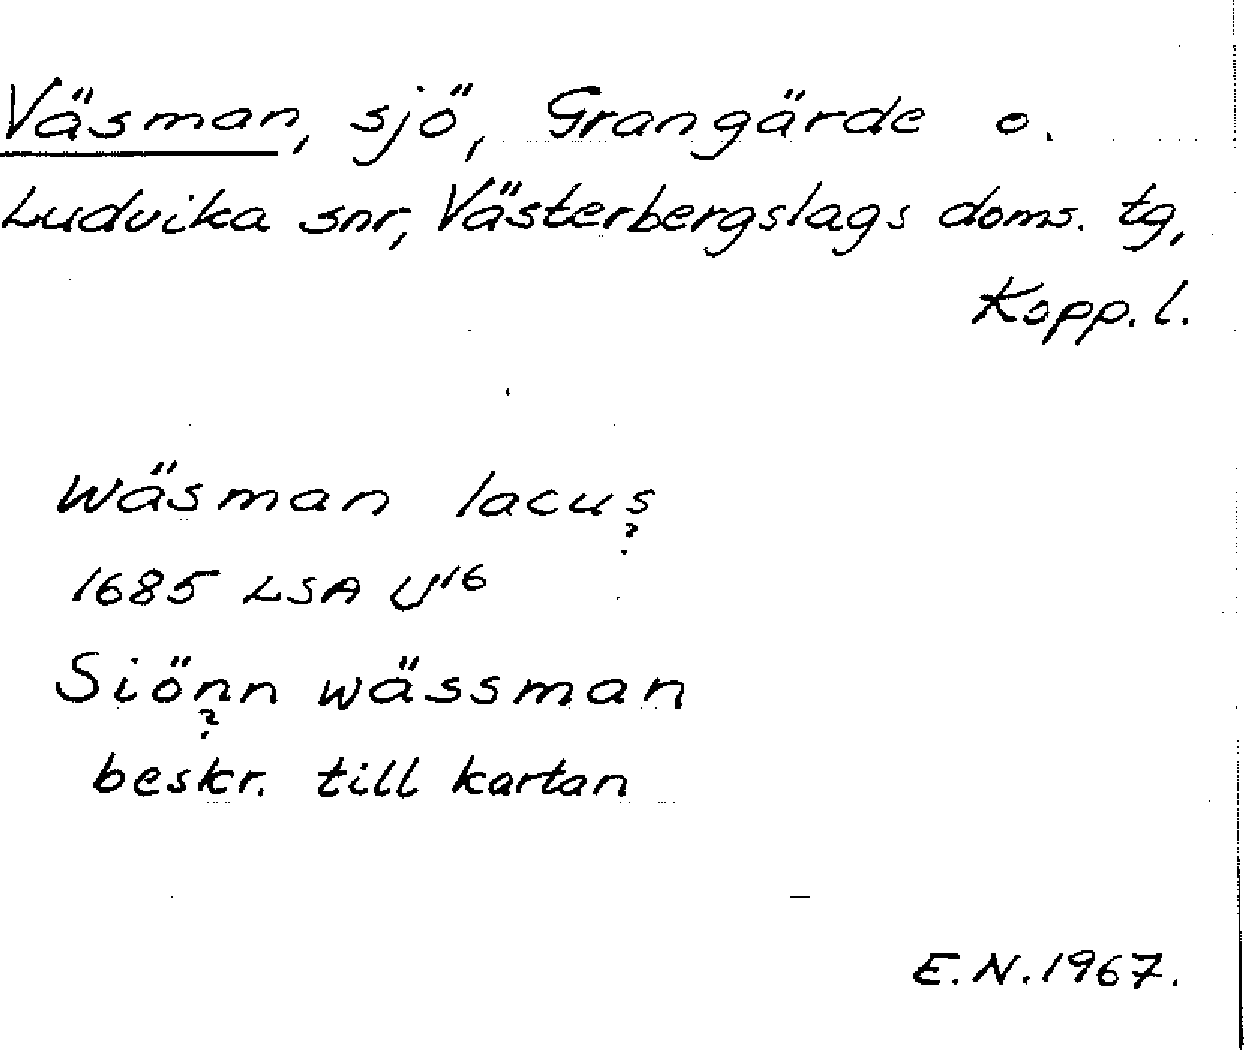 Väsman, sjö, Grangärde o.
Ludvika snr, Västerbergslags doms. tg,
Kopp. l.
Wäsman lacus
?
1685 LSA U16
Siönn wässman
?
beskr. till kartan
E.N. 1967.